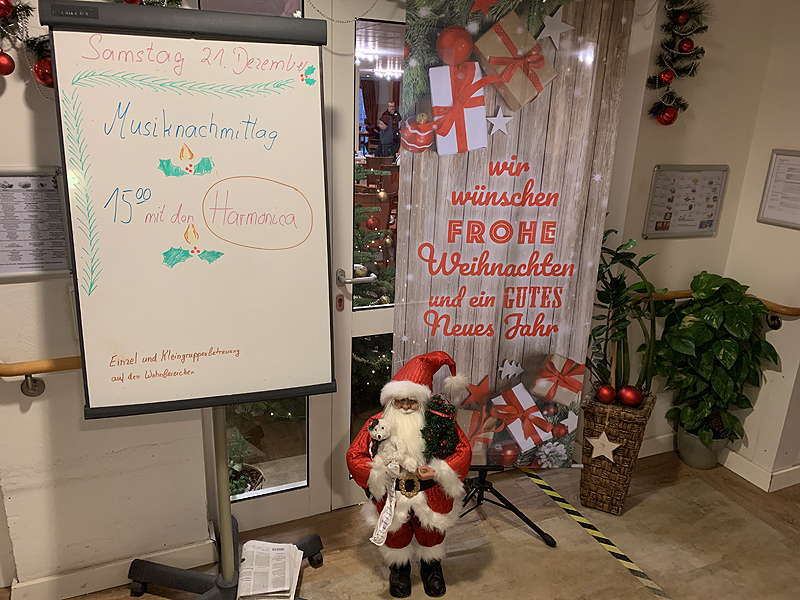 Samstag 21. Dezember
Musiknachmittag
15⁰⁰ mit den Harmonica
Einzel und Kleingruppenbetreuung
auf den Wohnbereichen
wir
wünschen
FROHE
Weihnachten
und ein GUTES
Neues Jahr